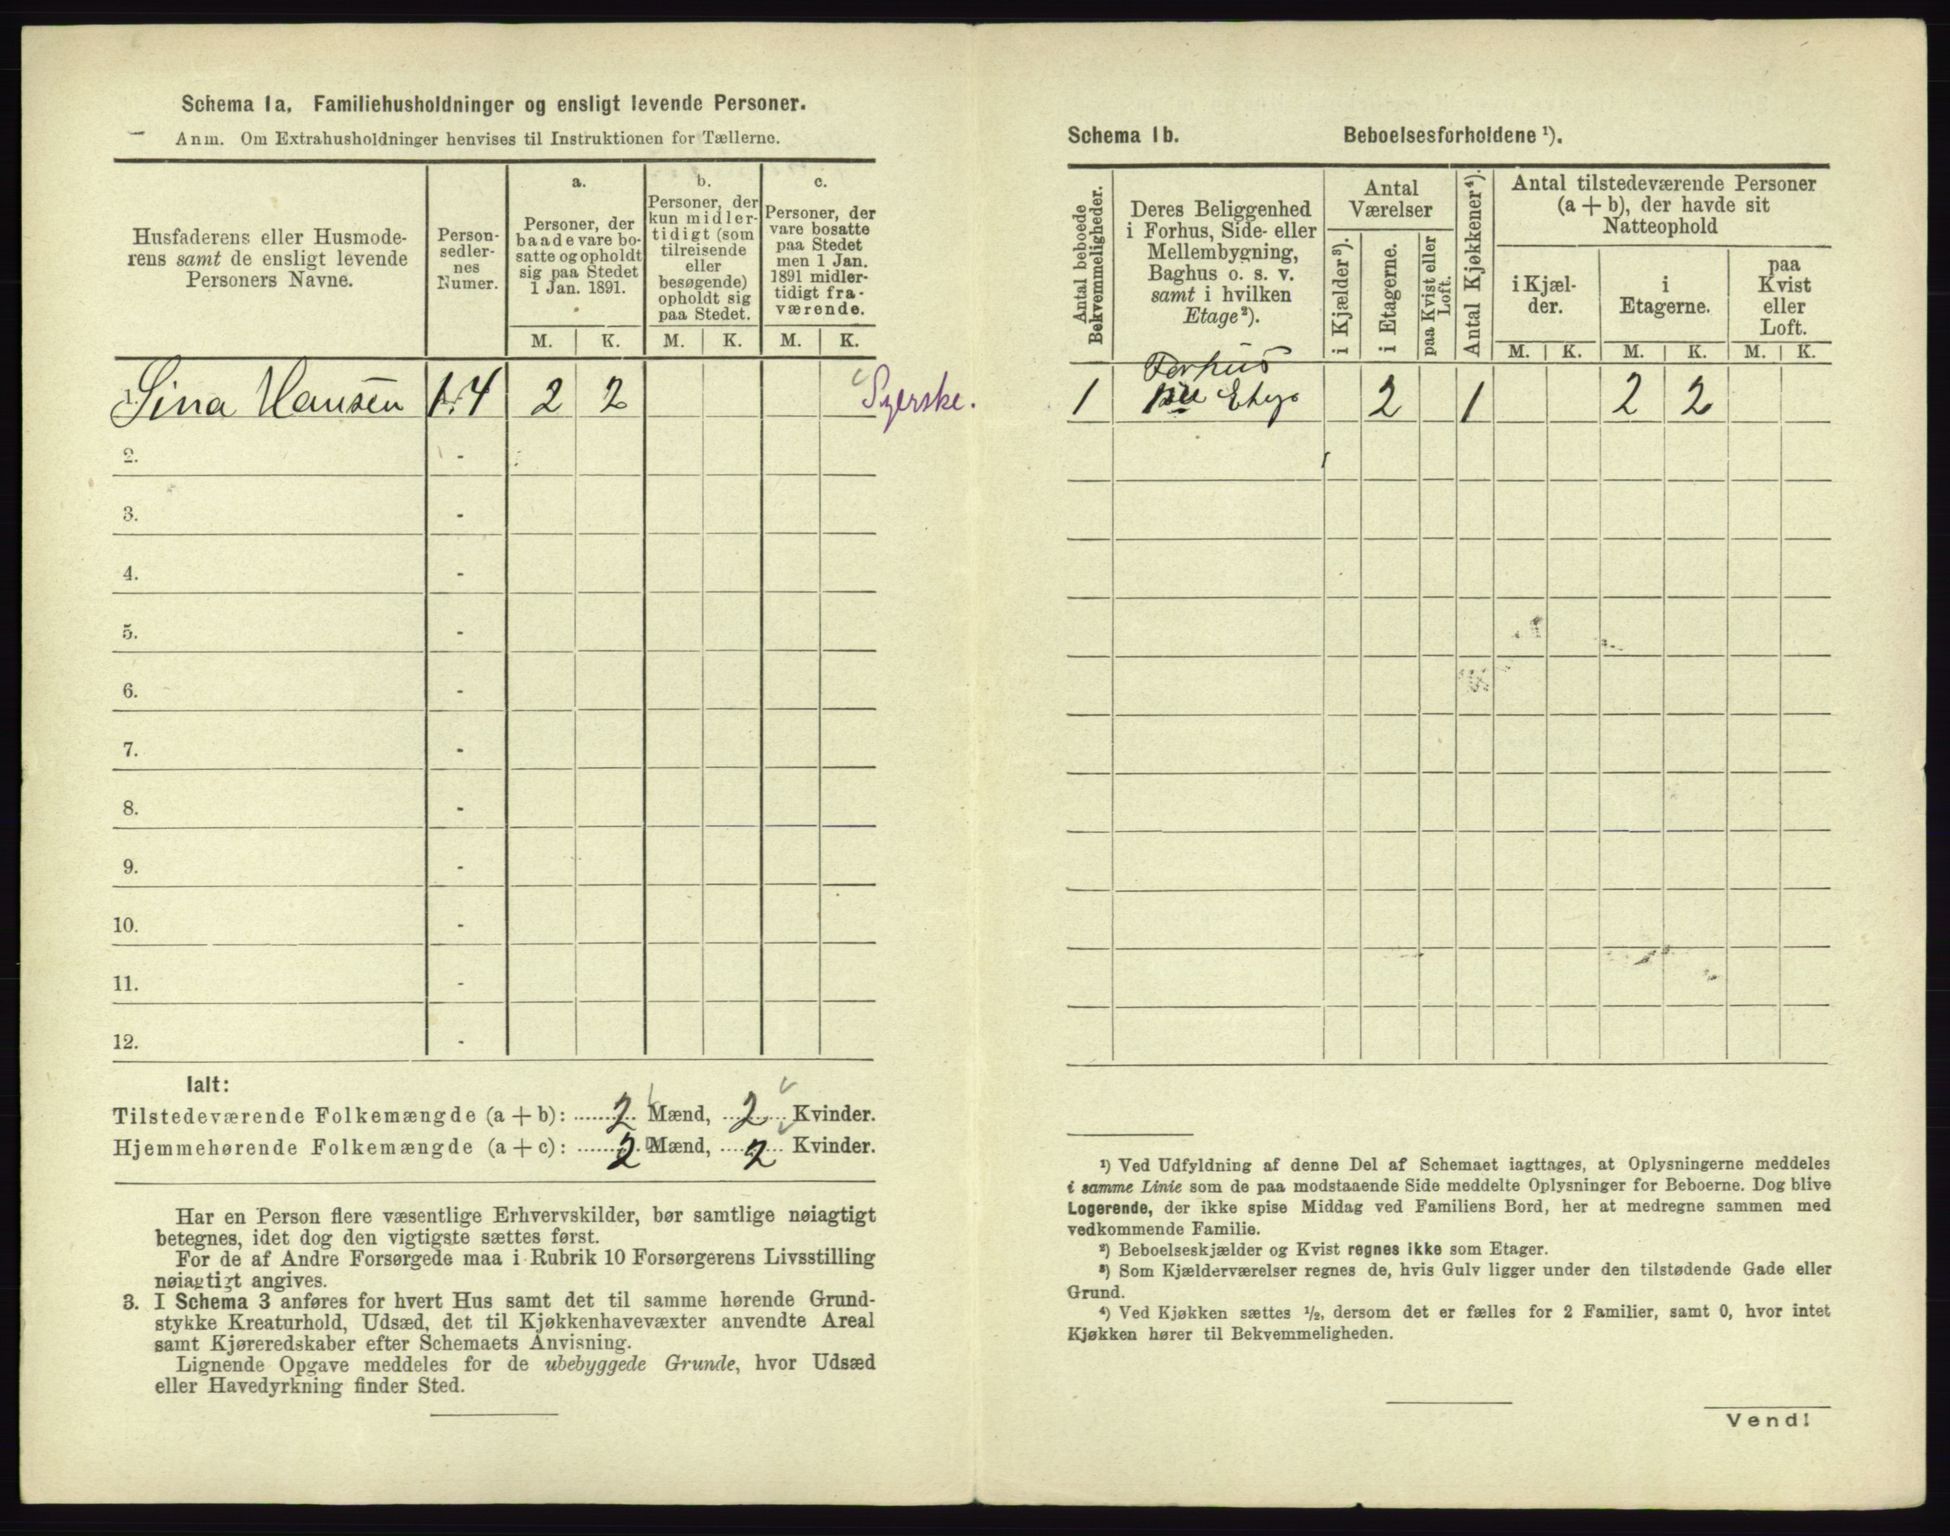 Schema 1a. Familiehusholdninger og ensligt levende Personer.
Anm. Om Extrahusholdninger henvises til Instruktionen for Tællerne.
Husfaderens eller Husmode-
rens samt de ensligt levende
Personers Navne.
Person-
sedler-
nes
Numer.
a.
Personer, der
baade vare bo-
satte og opholdt
sig paa Stedet
1 Jan. 1891.
b.
Personer, der
kun midler-
tidigt (som
tilreisende
eller
besøgende)
opholdt sig
paa Stedet.
c.
Personer, der
vare bosatte
paa Stedet
men 1 Jan.
1891 midler-
tidigt fra-
værende.
M. K. M. K. M. K.
1. Sina Hansen 1-4 2 2 Syerske.
2. -
3. -
4. -
5. -
6. -
7. -
8. -
9. -
10. -
11. -
12. -
Ialt:
Tilstedeværende Folkemængde (a + b): 2 Mænd, 2 Kvinder.
Hjemmehørende Folkemængde (a + c): 2 Mænd, 2 Kvinder.
Har en Person flere væsentlige Erhvervskilder, bør samtlige nøiagtigt
betegnes, idet dog den vigtigste sættes først.
For de af Andre Forsørgede maa i Rubrik 10 Forsørgerens Livsstilling
nøiagtigt angives.
3. I Schema 3 anføres for hvert Hus samt det til samme hørende Grund-
stykke Kreaturhold, Udsæd, det til Kjøkkenhavevæxter anvendte Areal
samt Kjøreredskaber efter Schemaets Anvisning.
Lignende Opgave meddeles for de ubebyggede Grunde, hvor Udsæd
eller Havedyrkning finder Sted.
Schema 1b. Beboelsesforholdene ¹).
Antal beboede
Bekvemmeligheder.
Deres Beliggenhed
i Forhus, Side- eller
Mellembygning,
Baghus o. s. v.
samt i hvilken
Etage²).
Antal
Værelser
i Kjælder³).
i Etagerne.
paa Kvist eller
Loft.
Antal Kjøkkener⁴).
Antal tilstedeværende Personer
(a + b), der havde sit
Natteophold
i Kjæl-
der.
i
Etagerne.
paa
Kvist
eller
Loft.
M. K. M. K. M. K.
Forhus
1 1ste Etage 2 1 2 2
¹) Ved Udfyldning af denne Del af Schemaet iagttages, at Oplysningerne meddeles
i samme Linie som de paa modstaaende Side meddelte Oplysninger for Beboerne. Dog blive
Logerende, der ikke spise Middag ved Familiens Bord, her at medregne sammen med
vedkommende Familie.
²) Beboelseskjælder og Kvist regnes ikke som Etager.
³) Som Kjælderværelser regnes de, hvis Gulv ligger under den tilstødende Gade eller
Grund.
⁴) Ved Kjøkken sættes ½, dersom det er fælles for 2 Familier, samt 0, hvor intet
Kjøkken hører til Bekvemmeligheden.
Vend!